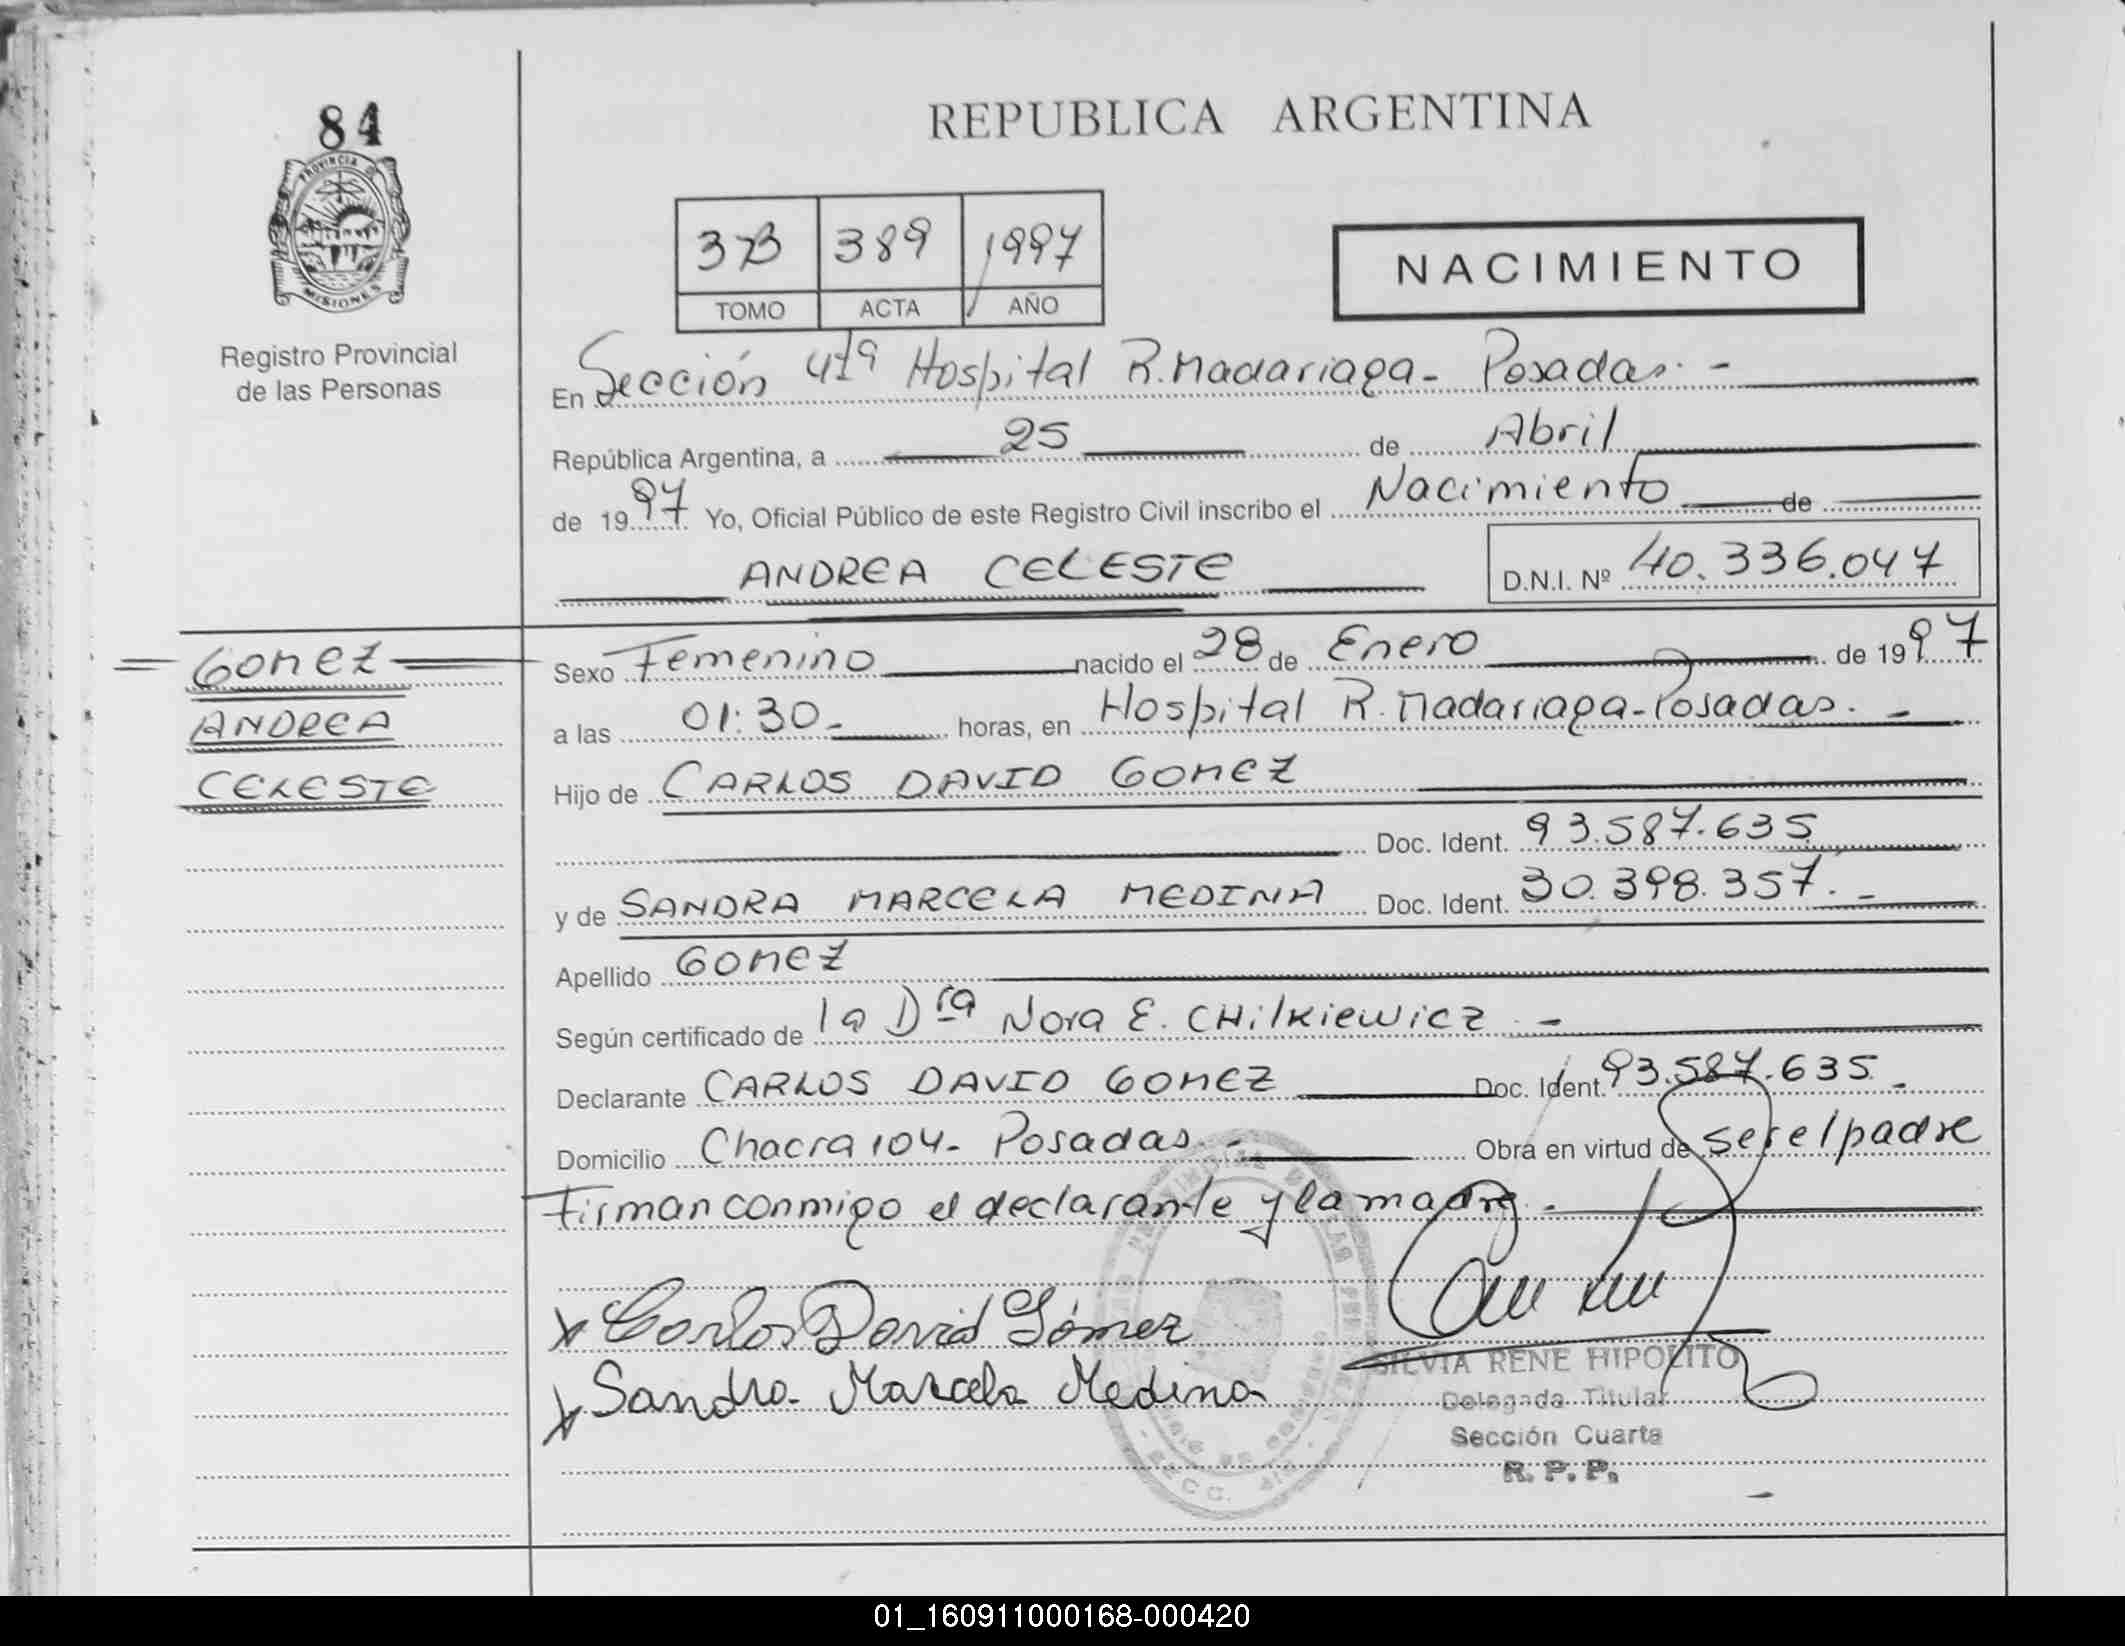 84
PROVINCIA DE
MISIONES
Registro Provincial
de las Personas
REPUBLICA ARGENTINA
373 389 1997
TOMO ACTA AÑO
NACIMIENTO
En Sección 4ta Hospital R. Madariaga - Posadas. -
República Argentina, a 25 de Abril
de 1997 Yo, Oficial Público de este Registro Civil inscribo el Nacimiento de
ANDREA CELESTE D.N.I. Nº 40.336.047
GOMEZ
ANDREA
CELESTE
Sexo Femenino nacido el 28 de Enero de 1997
a las 01:30 - horas, en Hospital R. Madariaga - Posadas. -
Hijo de CARLOS DAVID GOMEZ
Doc. Ident. 93.587.635
y de SANDRA MARCELA MEDINA Doc. Ident. 30.398.357. -
Apellido GOMEZ
Según certificado de la Dra Nora E. CHilkiewicz. -
Declarante CARLOS DAVID GOMEZ Doc. Ident. 93.587.635 -
Domicilio Chacra 104 - Posadas. - Obra en virtud de ser el padre
Firman conmigo el declarante y la madre. -
Carlos David Gómez
Sandra Marcela Medina
SILVIA RENE HIPOLITO
Delegada Titular
Sección Cuarta
R. P. P.
01_160911000168-000420